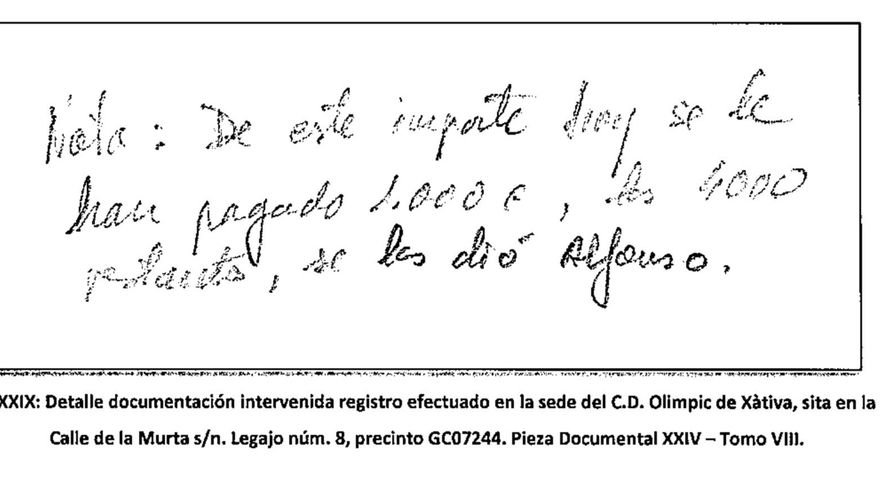 Nota: De este importe hoy se le
han pagado 1.000 €, los 4000
restantes, se los dió Alfonso.
XXIX: Detalle documentación intervenida registro efectuado en la sede del C.D. Olimpic de Xàtiva, sita en la
Calle de la Murta s/n. Legajo núm. 8, precinto GC07244. Pieza Documental XXIV – Tomo VIII.